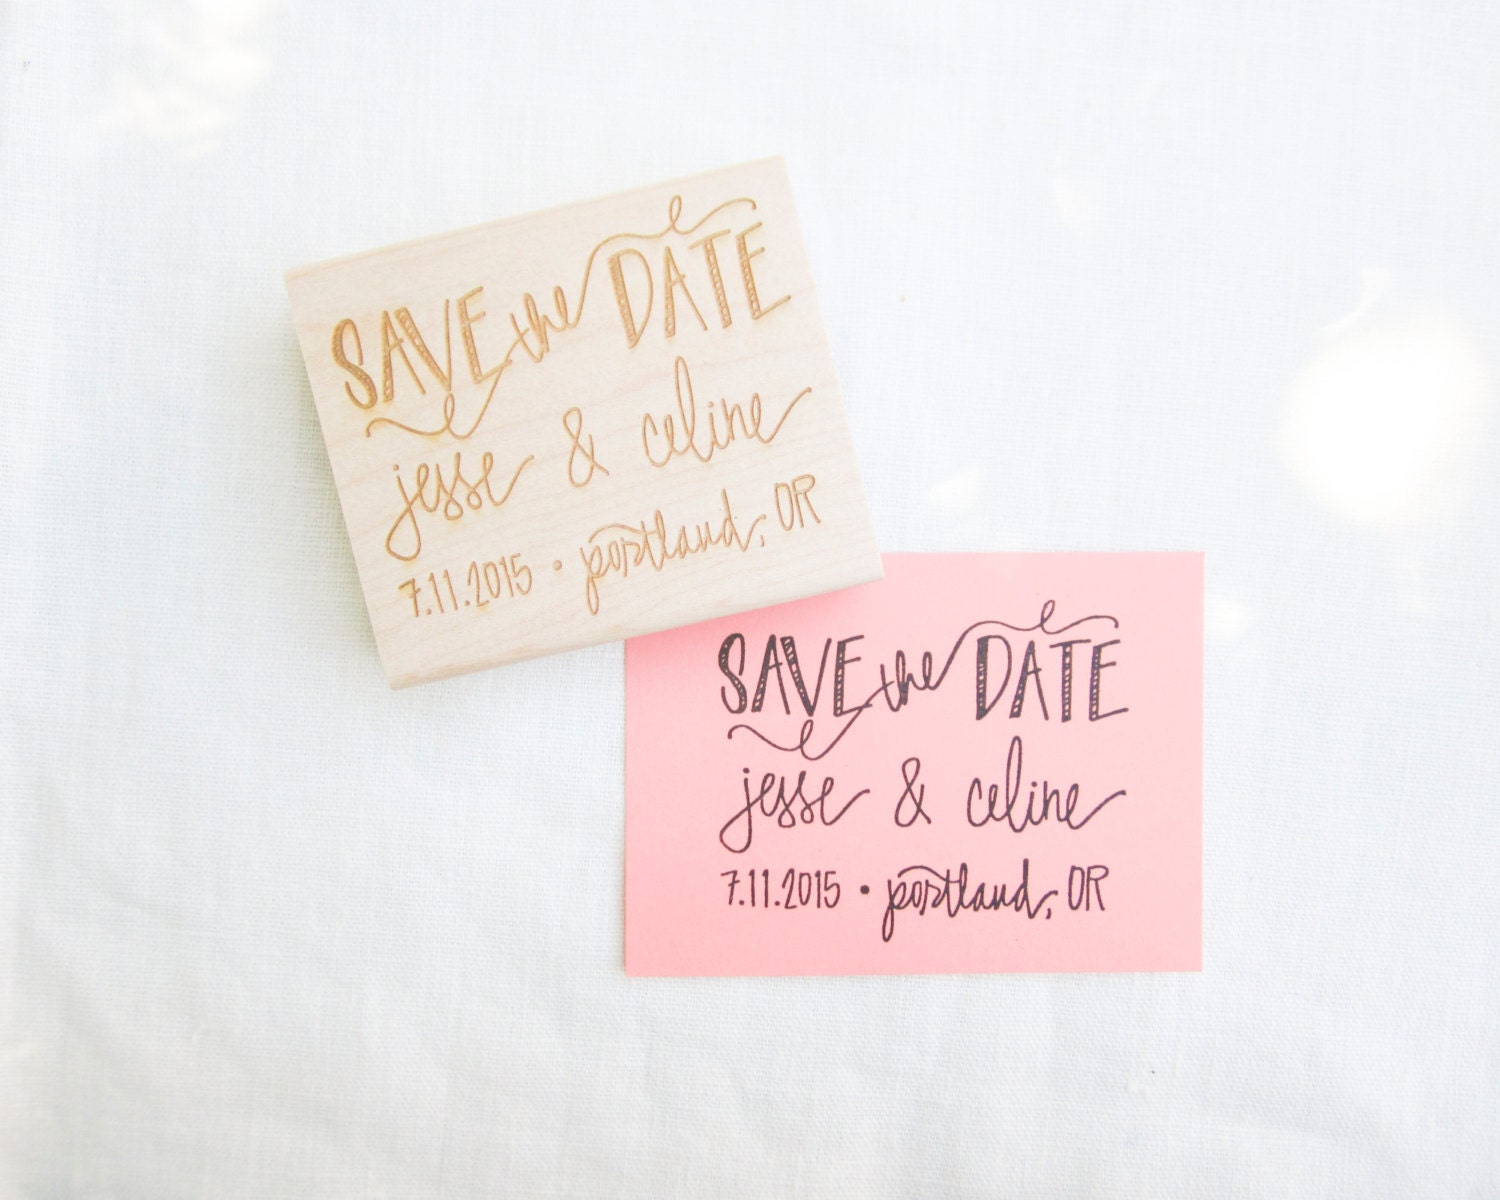 SAVE the DATE
jesse & celine
7.11.2015 • portland, OR
SAVE the DATE
jesse & celine
7.11.2015 • portland, OR